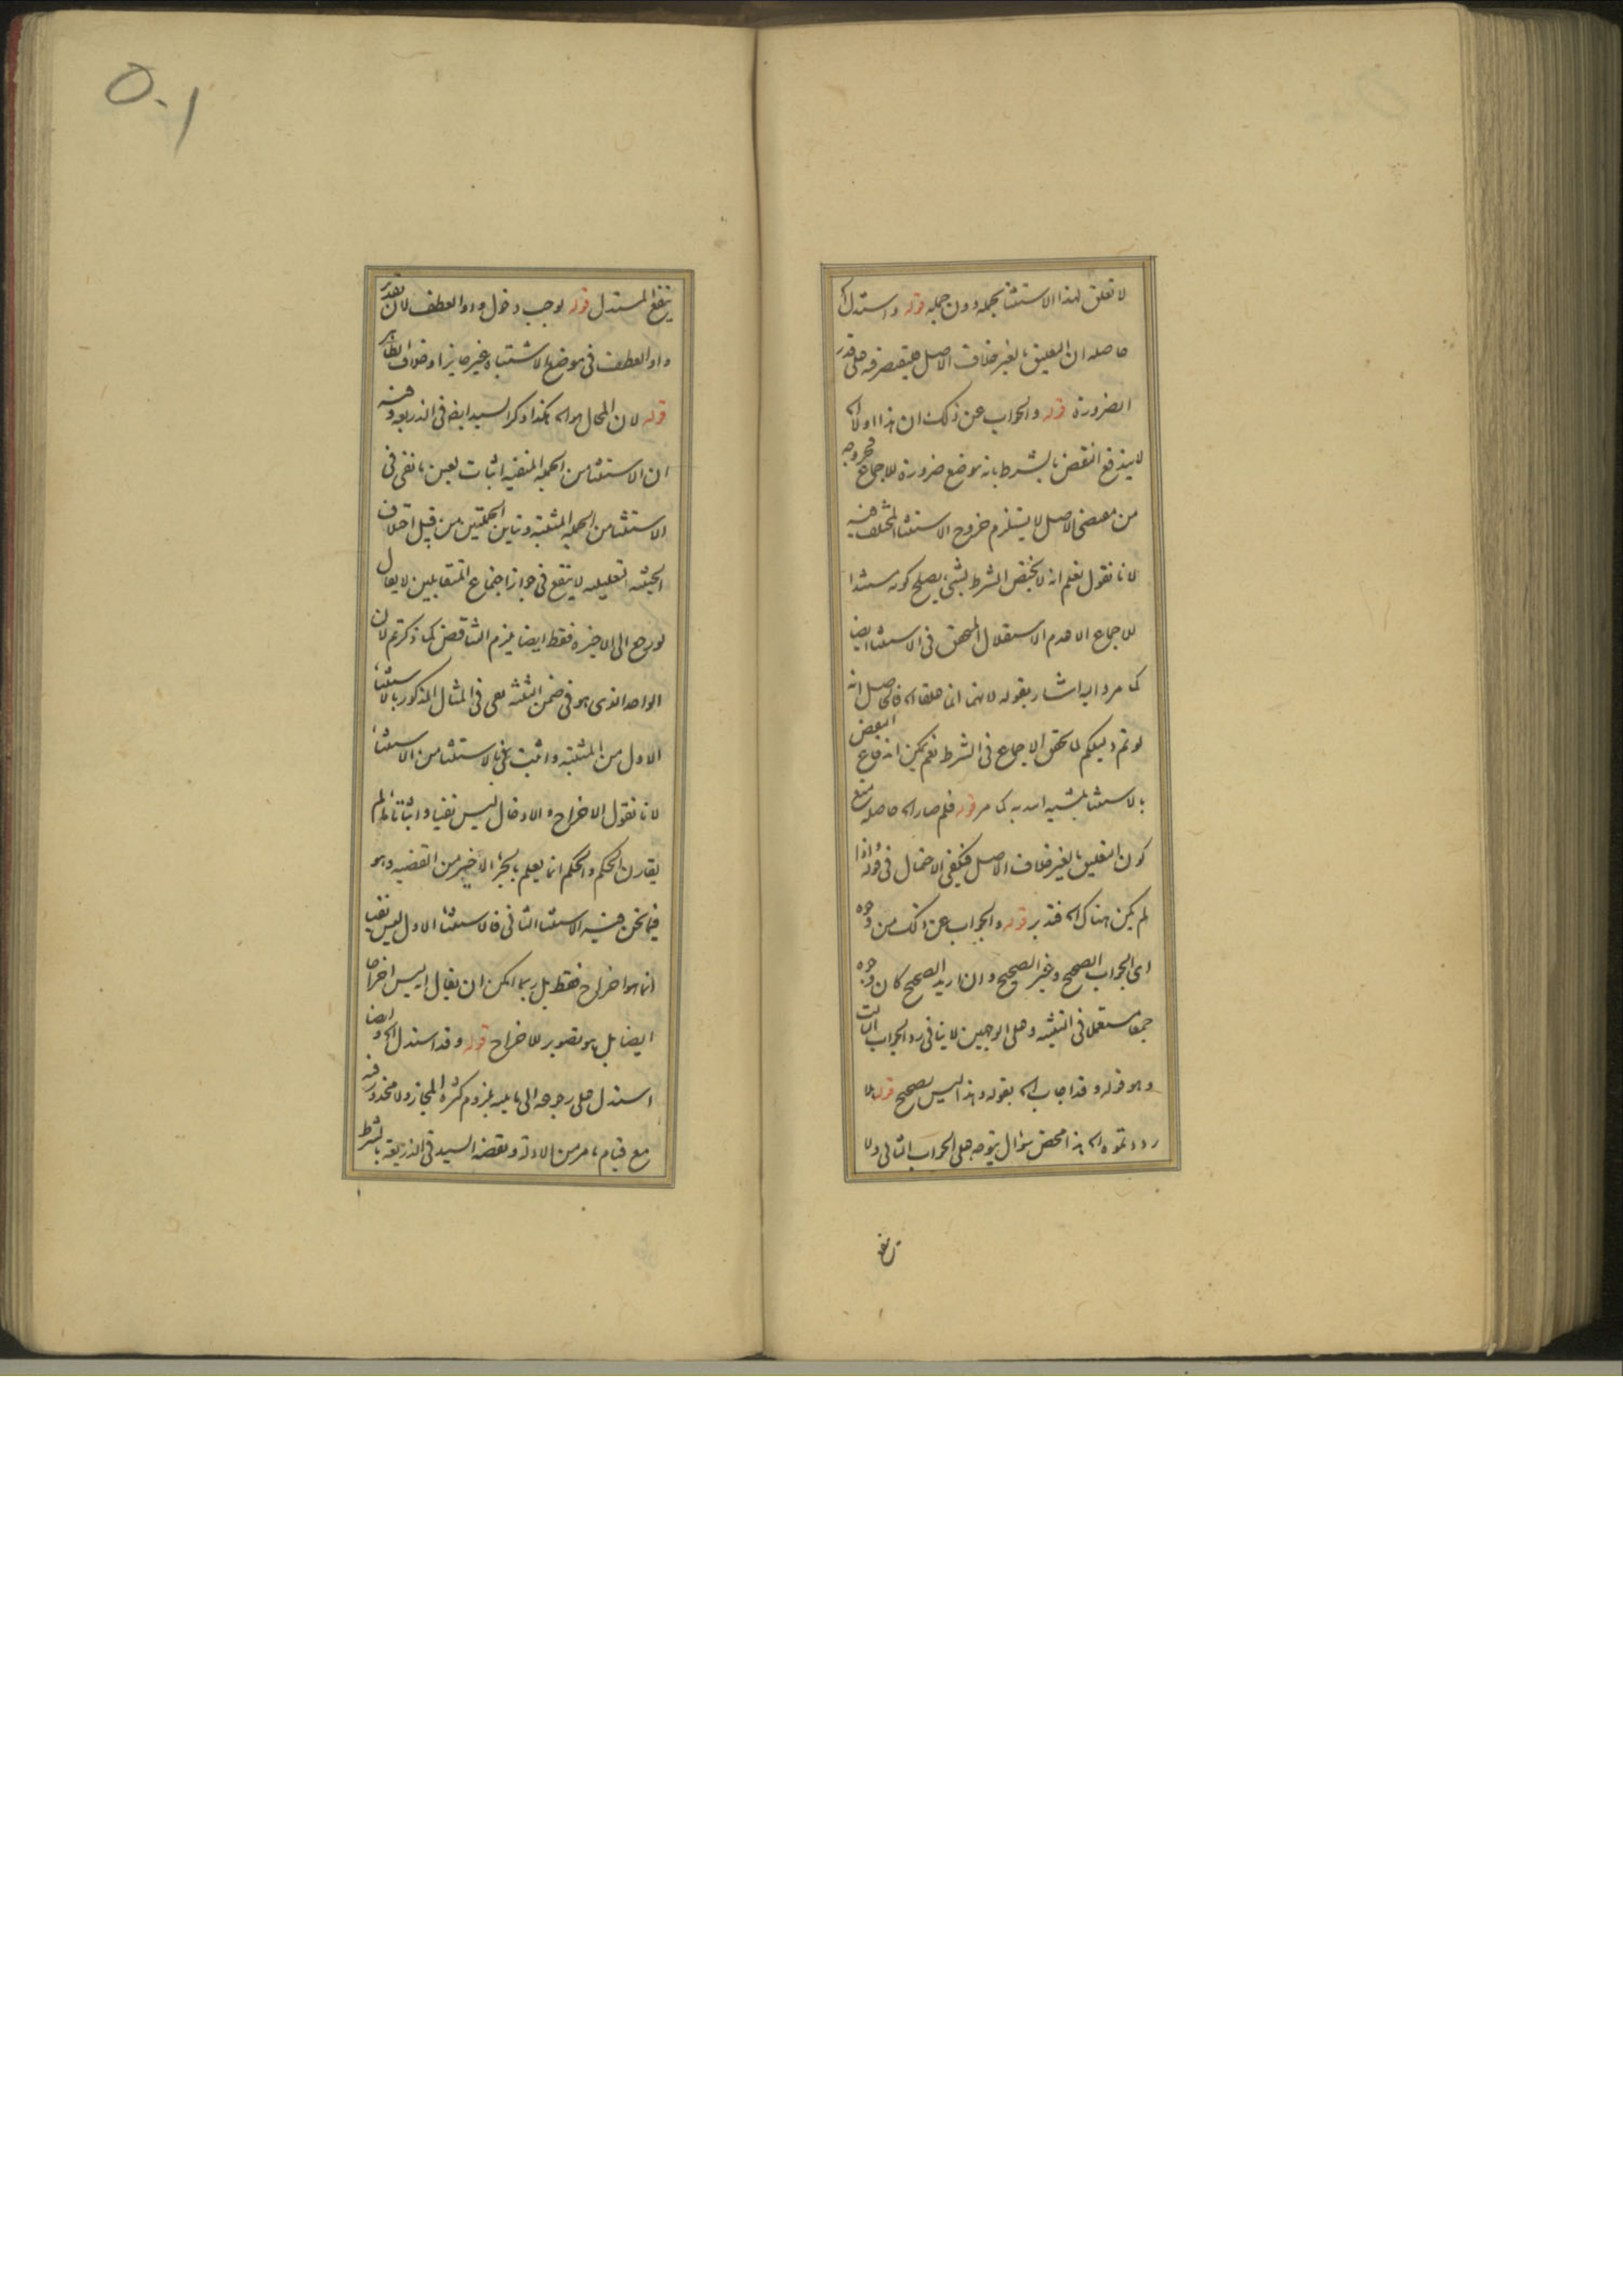 لا تعلق لهذا الاستثنا بجمله دون جمله قوله واستدل اه
حاصله ان التعليق بالغير خلاف الاصل فيقتصر فيه على قدر
الضرورة قوله والجواب عن ذلك ان هذا اولا اه
لا يندفع النقض بالشرط بانه موضع ضرورة للاجماع فخروجه
من مقتضى الاصل لا يستلزم خروج الاستثنا المختلف فيه
لانا نقول نعلم انه لا يختص الشرط بشي يصلح كونه سندا
للاجماع الا عدم الاستقلال المتحقق فى الاستثنا ايضا
كما مر واليه اشار بقوله لانهما انما علقا اه فالحاصل انه
لو تم دليلكم لما تحقق الاجماع فى الشرط نعم يمكن اندفاع النقض
بالاستثنا بمشيه الله به كما مر قوله فلم صار اه حاصله منع
كون التعليق بالغير خلاف الاصل فيكفى الاحتمال فى قوله واذا
لم يكن هناك اه فتدبر قوله والجواب عن ذلك من وجوه
اى الجواب الصحيح وغير الصحيح وان اريد الصحيح كان وجوه
جمعا مستعملا فى التثنيه وعلى الوجهين لا ينافى رد الجواب الثالث
وهو قوله وقد اجاب اه بقوله وهذا ليس بصحيح قوله لا
هذا محض سؤال يتوجه على الجواب الثانى ولا
ينفع المستدل قوله لوجب دخول واو العطف لان تقدير
واو العطف فى موضع الاشتباه غير جايز او خلاف الظاهر
قوله لان المحال هو اه هكذا ذكر السيد ايضا فى الذريعه وفيه
ان الاستثنا من الجمله المنفيه اثبات لعين ما نفى فى
الاستثنا من الجمله المثبته وتباين الجملتين من قبيل اختلاف
الحيثيه التعليليه لا ينفع فى جواز اجتماع المتقابلين لا يقال
لو رجع الى الاخيرة فقط ايضا يلزم التناقض كما ذكرتم لان
الواحد الذى هو فى ضمن الثلثه نفى فى المثال المذكور بالاستثناء
الاول من المثبته واثبت فى الاستثنا من الاستثناء
لانا نقول الاخراج والادخال ليس نفيا واثباتا ما لم
يقارن الحكم والحكم انما يعلم بالجزء الاخير من القضيه وهو
فيما نحن فيه الاستثنا الثانى فالاستثناء الاول ليس نفيا
انما هو اخراج فقط بل ربما امكن ان يقال انه ليس اخراجا
ايضا بل هو تصوير للاخراج قوله وقد استدل اه وايضا
استدل على رجوعه الى ما يليه بلزوم كثرة المجاز ولا محذور فيه
مع قيام ما مر من الادلة ونقضه السيد فى الذريعه بالشرط
٥٠١